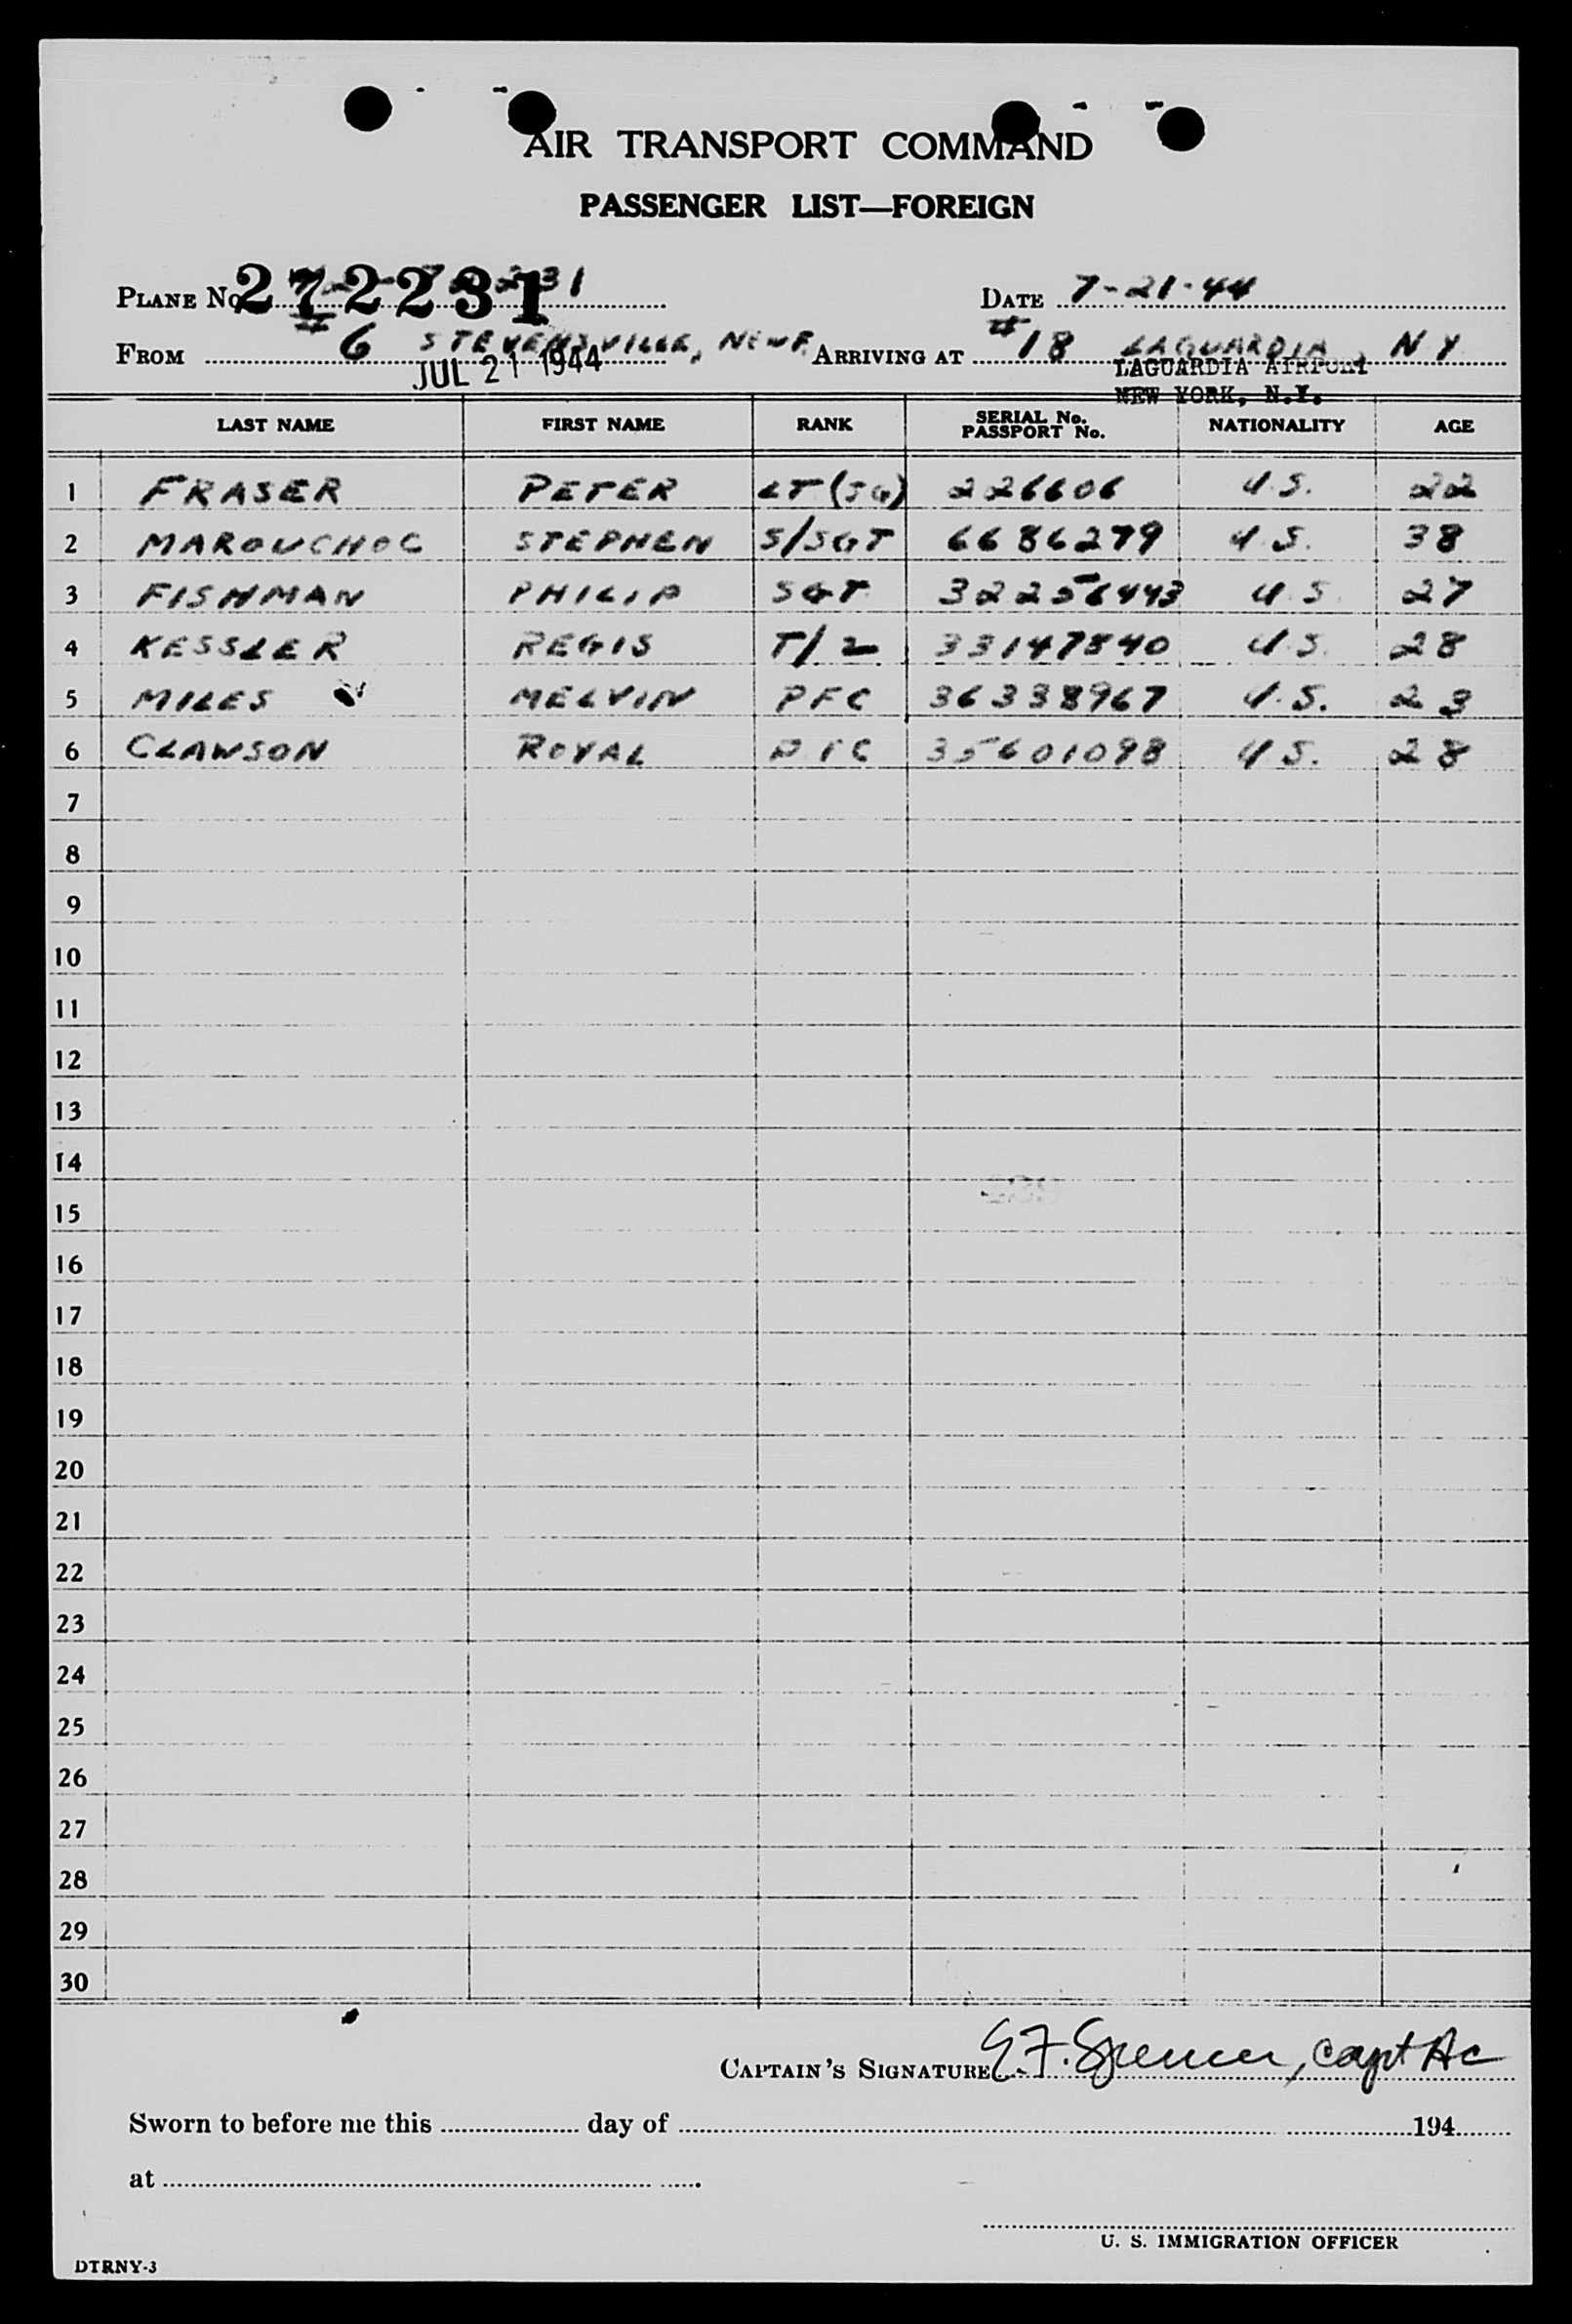 AIR TRANSPORT COMMAND
PASSENGER LIST—FOREIGN
PLANE No. 272231 DATE 7-21-44
FROM #6 STEVENSVILLE, NEWF. ARRIVING AT #18 LAGUARDIA, NY
JUL 21 1944 LAGUARDIA AIRPORT
NEW YORK, N.Y.
LAST NAME FIRST NAME RANK SERIAL No. PASSPORT No. NATIONALITY AGE
1 FRASER PETER LT(JG) 226606 U.S. 22
2 MAROUCHOC STEPHEN S/SGT 6686279 U.S. 38
3 FISHMAN PHILIP SGT 32256443 U.S. 27
4 KESSLER REGIS T/2 33147840 U.S. 28
5 MILES MELVIN PFC 36338967 U.S. 23
6 CLAWSON ROYAL PFC 35601098 U.S. 28
7
8
9
10
11
12
13
14
15
16
17
18
19
20
21
22
23
24
25
26
27
28
29
30
CAPTAIN'S SIGNATURE E.F. Spencer, Capt AC
Sworn to before me this day of 194
at .
U. S. IMMIGRATION OFFICER
DTRNY-3